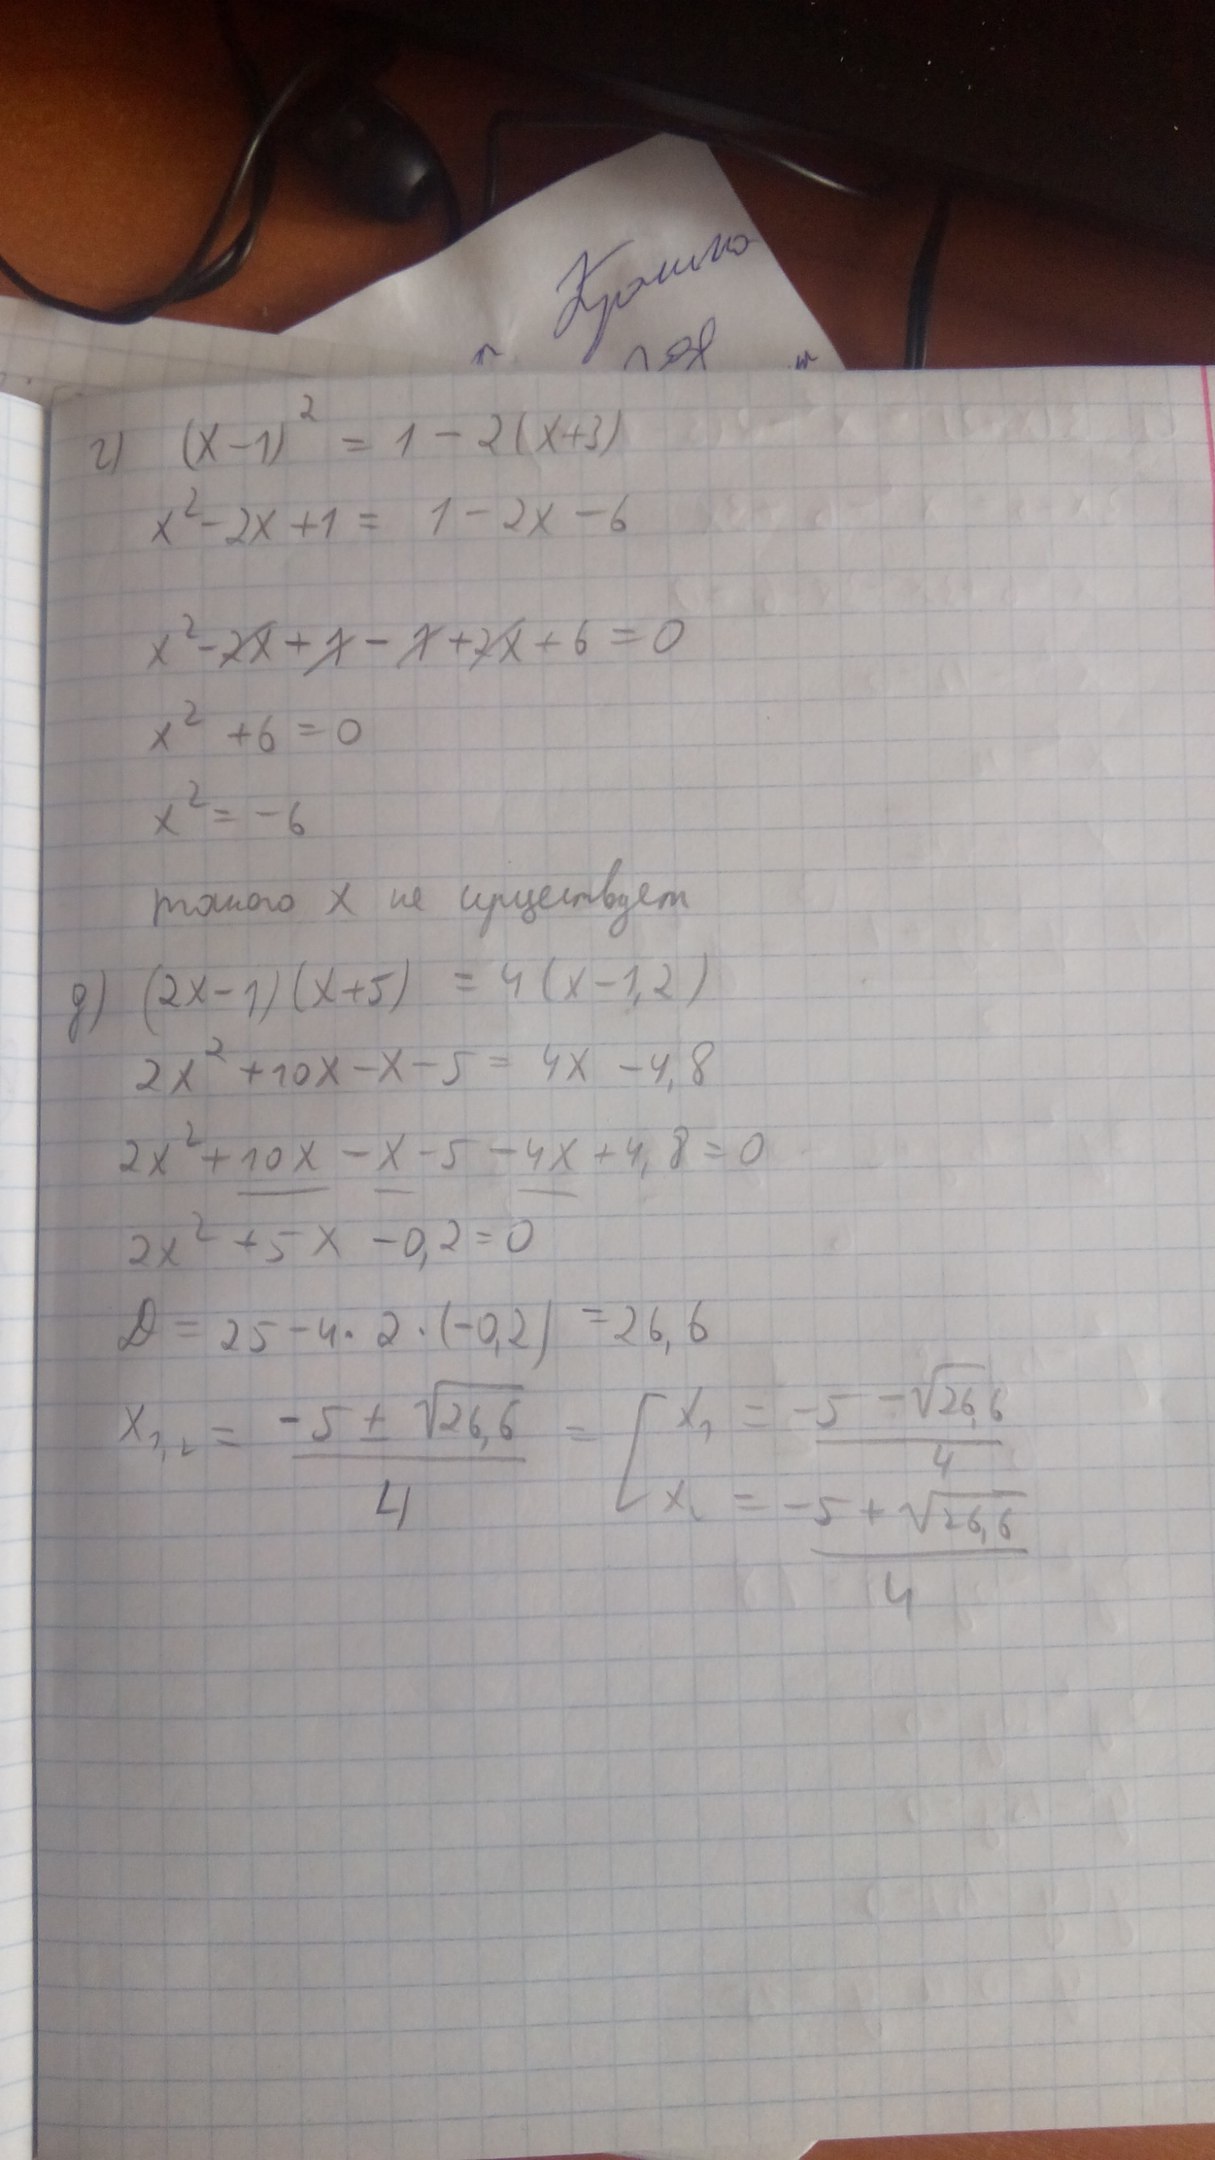 г) (x-1)² = 1-2(x+3)
x²-2x+1= 1-2x-6
x²-2x+1-1+2x+6=0
x²+6=0
x²=-6
такого x не существует
д) (2x-1)(x+5) = 4(x-1,2)
2x²+10x-x-5= 4x-4,8
2x²+10x-x-5-4x+4,8=0
2x²+5x-0,2=0
D=25-4·2·(-0,2) =26,6
x₁,₂ = (-5±√26,6)/4 = [ x₁ = (-5-√26,6)/4
x₂ = (-5+√26,6)/4